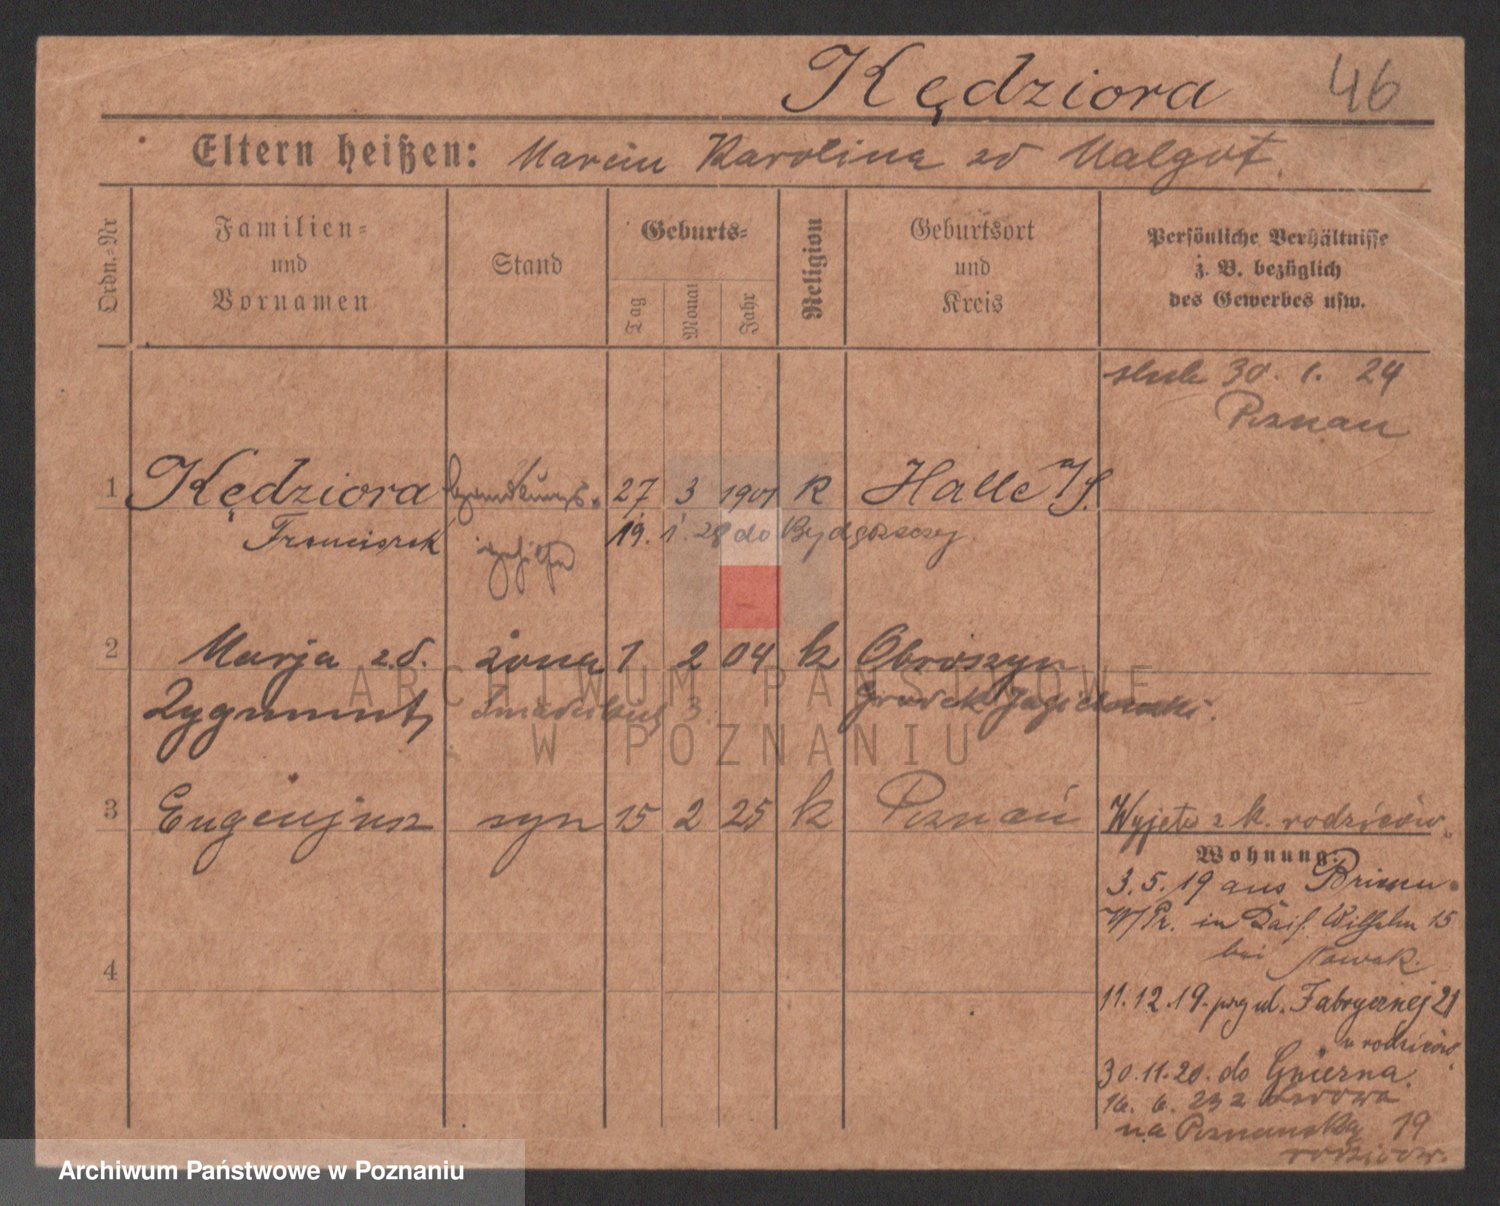 Kędziora 46
Eltern heißen: Marcin Karolina zd Malgot.
Ordn.-Nr
Familien- und Vornamen
Stand
Geburts-
Tag
Monat
Jahr
Religion
Geburtsort und Kreis
Persönliche Verhältnisse
z. B. bezüglich
des Gewerbes usw.
ślub 30. 1. 24
Poznań
1 Kędziora Handlungs- 27 3 1901 k Halle a/S.
Franciszek gehilfe 19. 1. 28 do Bydgoszczy
2 Marja z d. żona 1 2 04 k Obroszyn
Zygmunt 3. Gródek Jagielloński.
3 Eugenjusz syn 15 2 25 k Poznań
Wyjęte z k. rodziców.
Wohnung.
3. 5. 19 aus Briesen
W/Pr. in Kais. Wilhelm 15
bei Nowak.
4
11. 12. 19. przy ul. Fabrycznej 21
u rodziców.
30. 11. 20. do Gniezna.
16. 6. 23 z Lwowa
na Poznańską 19
rodziców.
ARCHIWUM PAŃSTWOWE
W POZNANIU
Archiwum Państwowe w Poznaniu